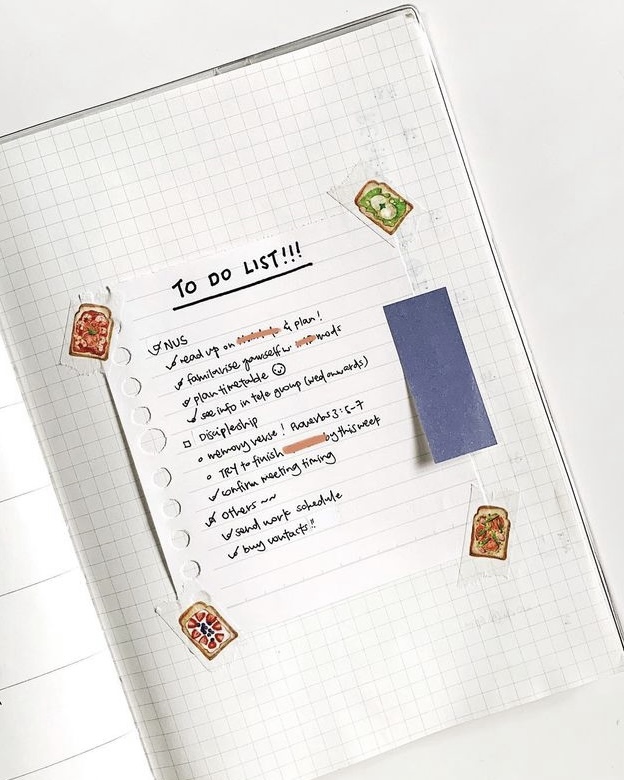 TO DO LIST!!!
NUS
read up on & plan!
familiarise yourself w mods
plan timetable
see info in tele group (wed onwards)
Discipleship
memory verse! Proverbs 3:5-7
TRY to finish by this week
confirm meeting timing
Others ~~
send work schedule
buy contacts!!